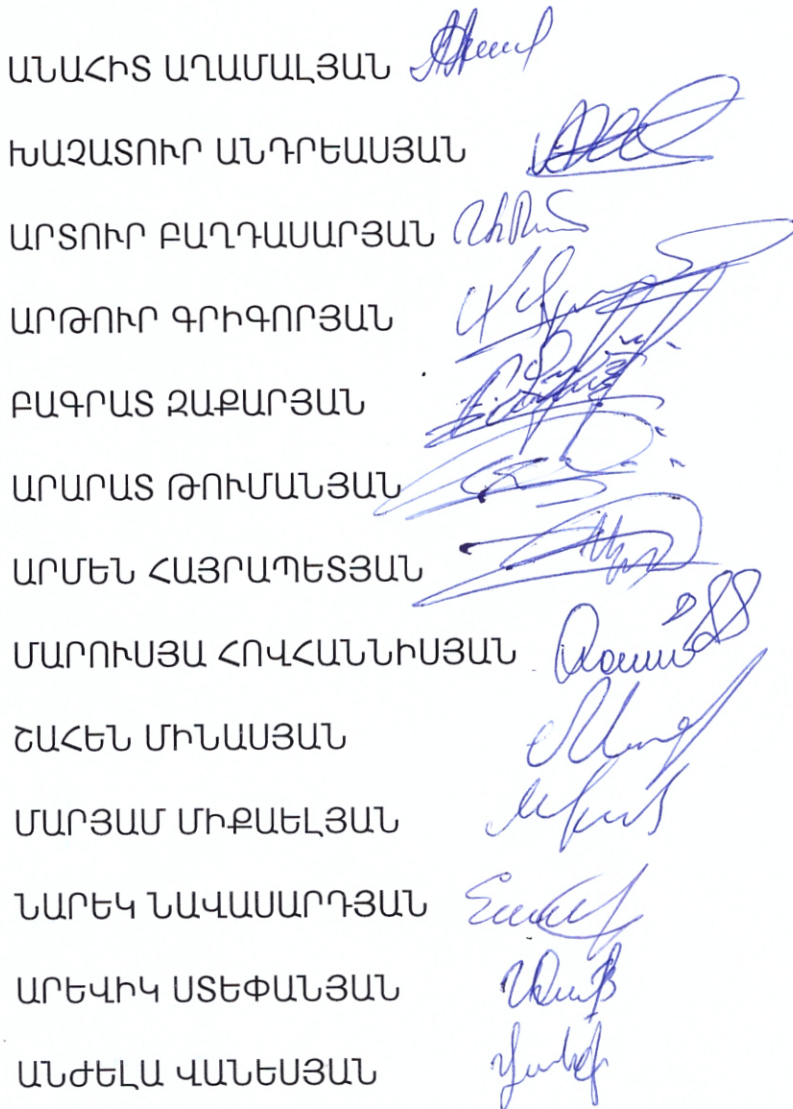 ԱՆԱՀԻՏ ԱՂԱՄԱԼՅԱՆ
ԽԱՉԱՏՈՒՐ ԱՆԴՐԵԱՍՅԱՆ
ԱՐՏՈՒՐ ԲԱՂԴԱՍԱՐՅԱՆ
ԱՐԹՈՒՐ ԳՐԻԳՈՐՅԱՆ
ԲԱԳՐԱՏ ԶԱՔԱՐՅԱՆ
ԱՐԱՐԱՏ ԹՈՒՄԱՆՅԱՆ
ԱՐՄԵՆ ՀԱՅՐԱՊԵՏՅԱՆ
ՄԱՐՈՒՍՅԱ ՀՈՎՀԱՆՆԻՍՅԱՆ
ՇԱՀԵՆ ՄԻՆԱՍՅԱՆ
ՄԱՐՅԱՄ ՄԻՔԱԵԼՅԱՆ
ՆԱՐԵԿ ՆԱՎԱՍԱՐԴՅԱՆ
ԱՐԵՎԻԿ ՍՏԵՓԱՆՅԱՆ
ԱՆԺԵԼԱ ՎԱՆԵՍՅԱՆ